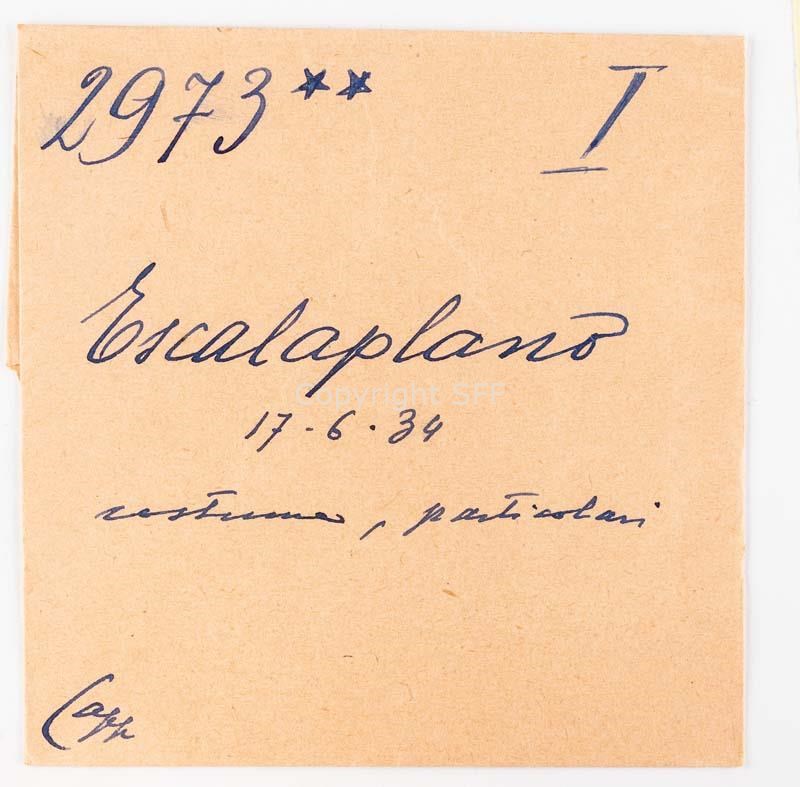 2973** I
Escalaplano
Copyright SFF
17-6.34
costume, particolari
Capp